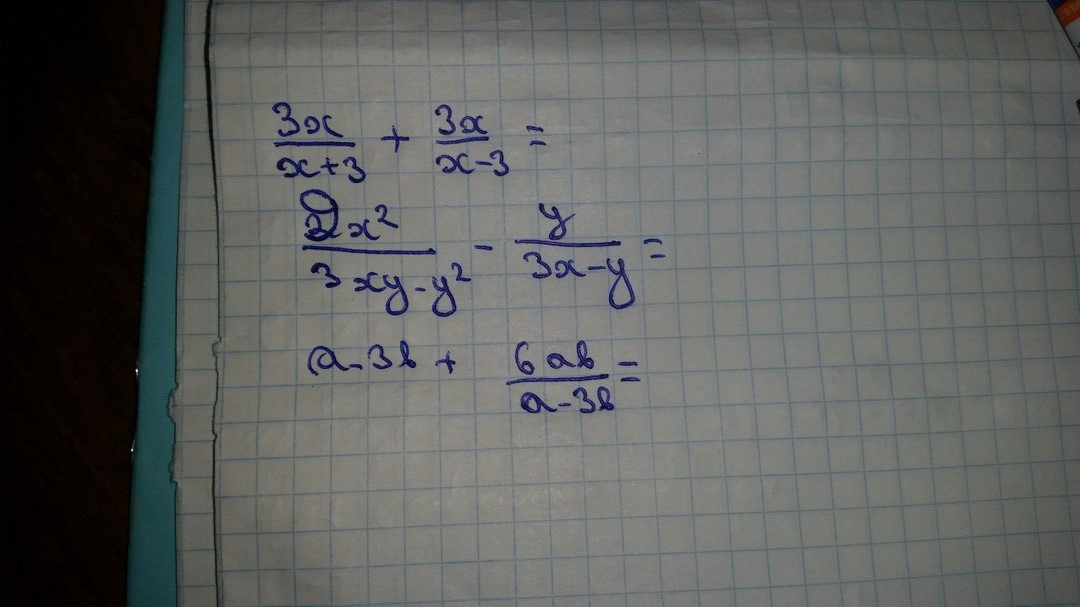 3x/(x+3) + 3x/(x-3) =
9x²/(3xy-y²) - y/(3x-y) =
a-3b + 6ab/(a-3b) =